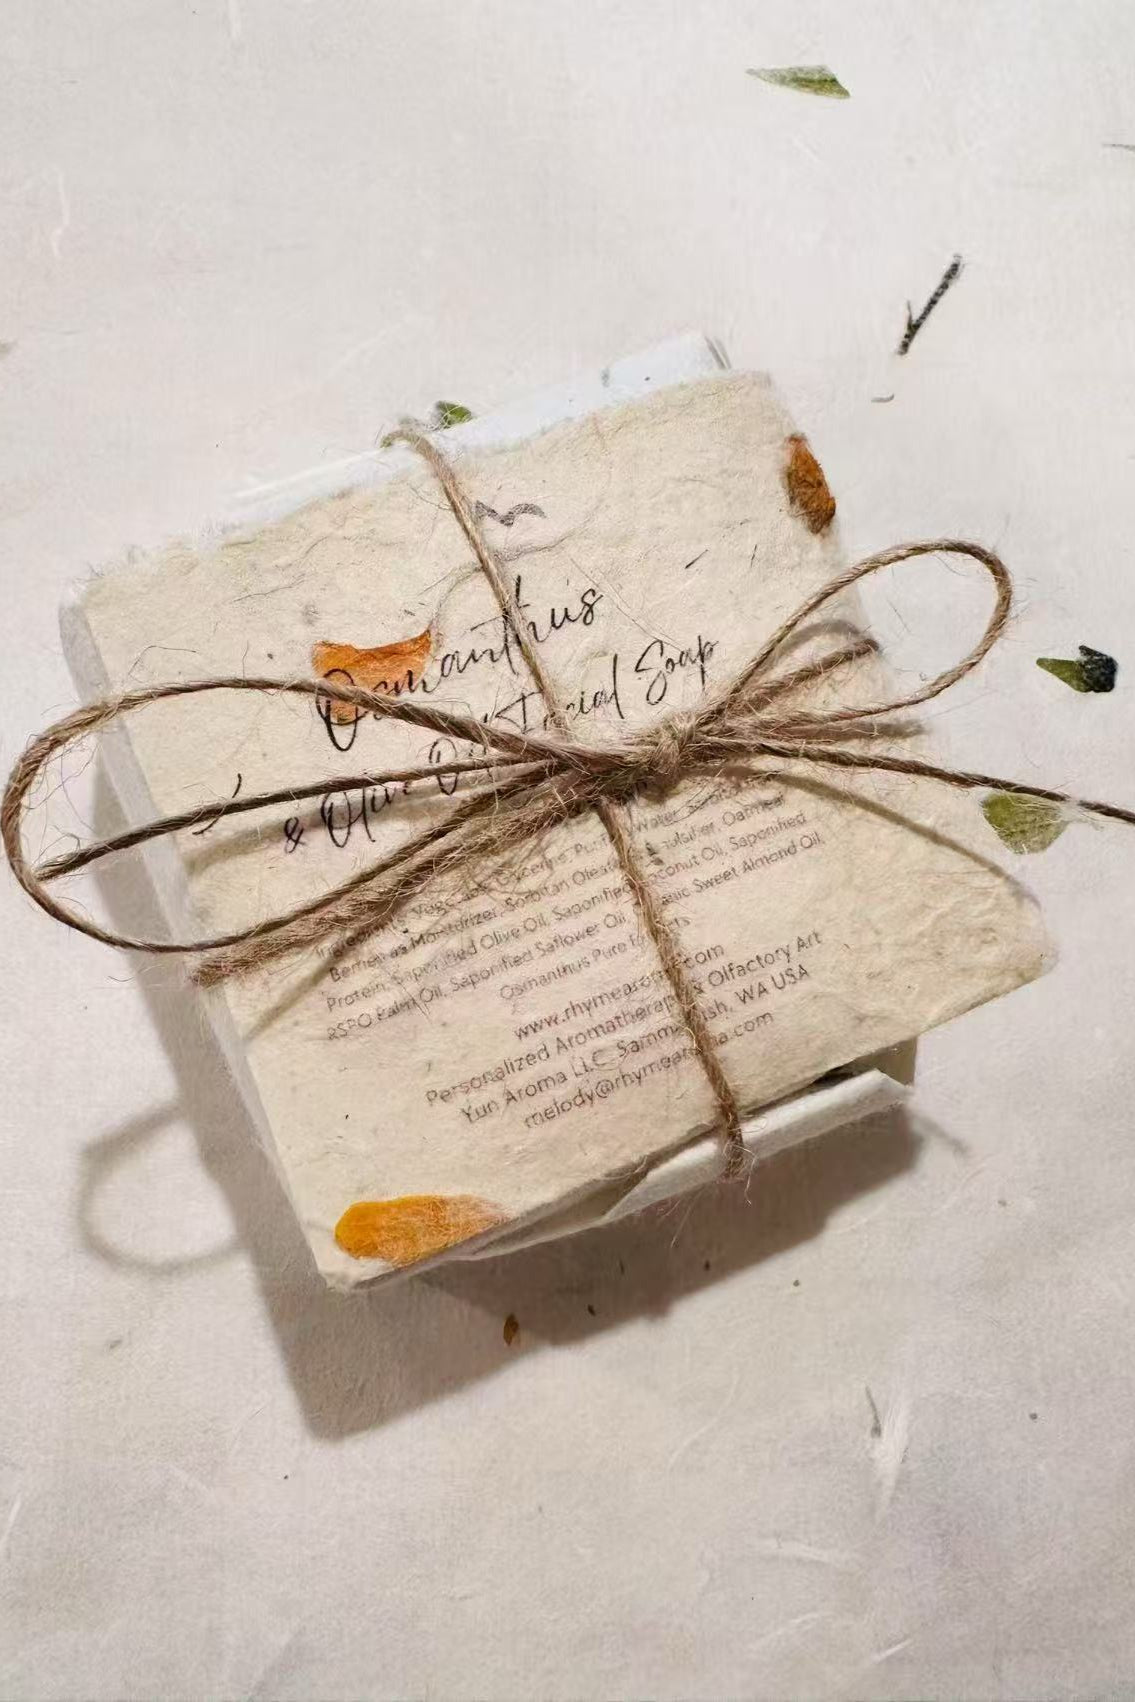 Osmanthus
& Olive Oil Facial Soap
Ingredients: Vegetable Glycerine, Purified Water,
Berries as Moisturizer, Sorbitan Oleate Oatmeal
Protein, Saponified Olive Oil, Saponified Coconut Oil, Saponified
RSPO Palm Oil, Saponified Saflower Oil, Sweet Almond Oil,
Osmanthus Pure
www.rhymearoma.com
Personalized Aromatherapy & Olfactory Art
Yun Aroma LLC, Sammamish, WA USA
melody@rhymearoma.com